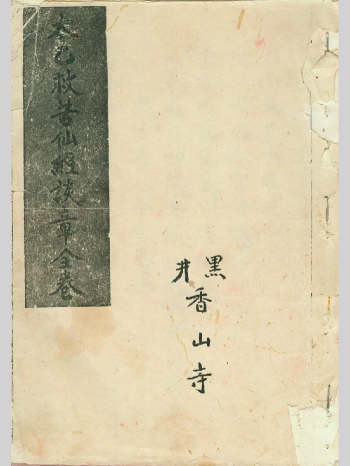 太乙救苦仙經談章全卷
黑井
香山寺